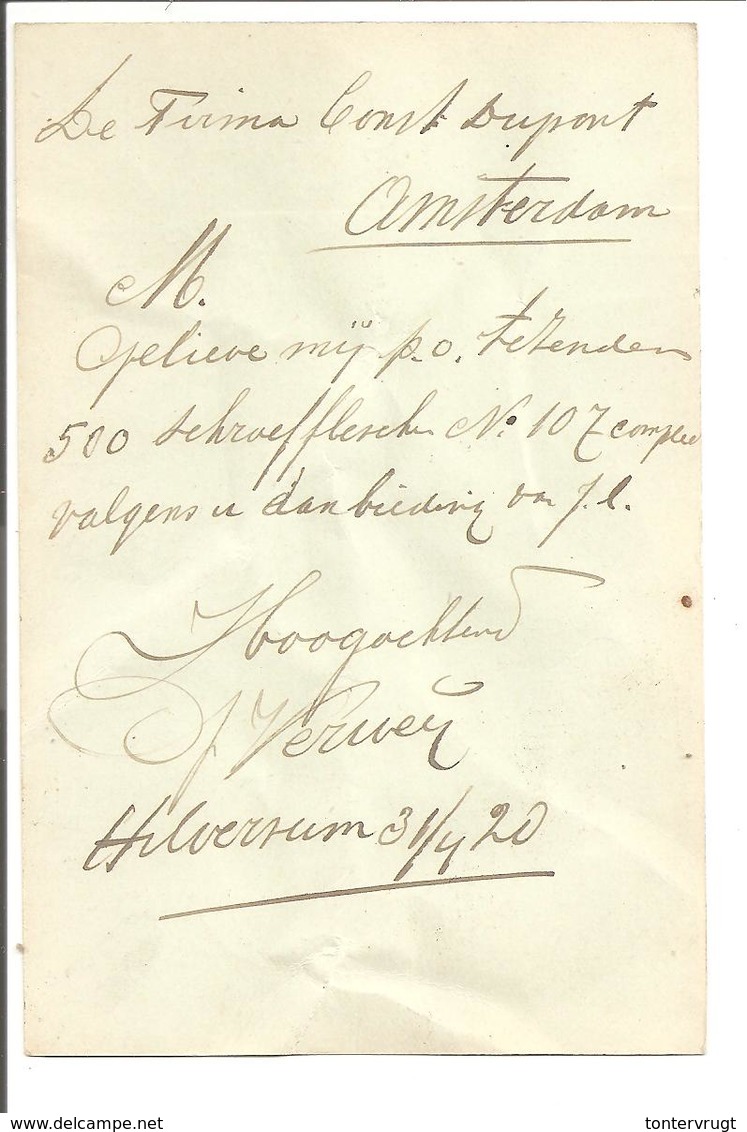 De Firma Const Dupont
Amsterdam
M.
Gelieve mij p.o. te zenden
500 schroefflesch No 107 compleet
volgens u aanbieding van j.l.
Hoogachtend
J Verweij
Hilversum 31/ 20
Delcampe.net
tontervrugt